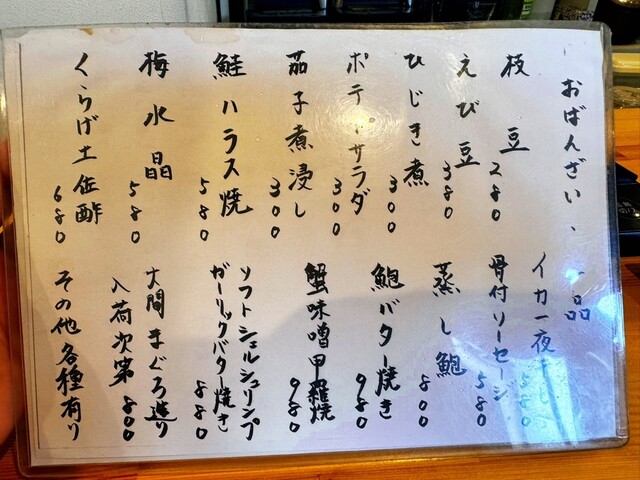 おばんざい、一品
枝豆 280
えび豆 380
ひじき煮 300
ポテトサラダ 300
茄子煮浸し 300
鮭ハラス焼 580
梅水晶 580
くらげ土佐酢 680
イカ一夜干し 580
骨付ソーセージ 580
蒸し鮑 800
鮑バター焼き 980
蟹味噌甲羅焼 980
ソフトシェルシュリンプ
ガーリックバター焼き 880
大間まぐろ造り
入荷次第 800
その他各種有り